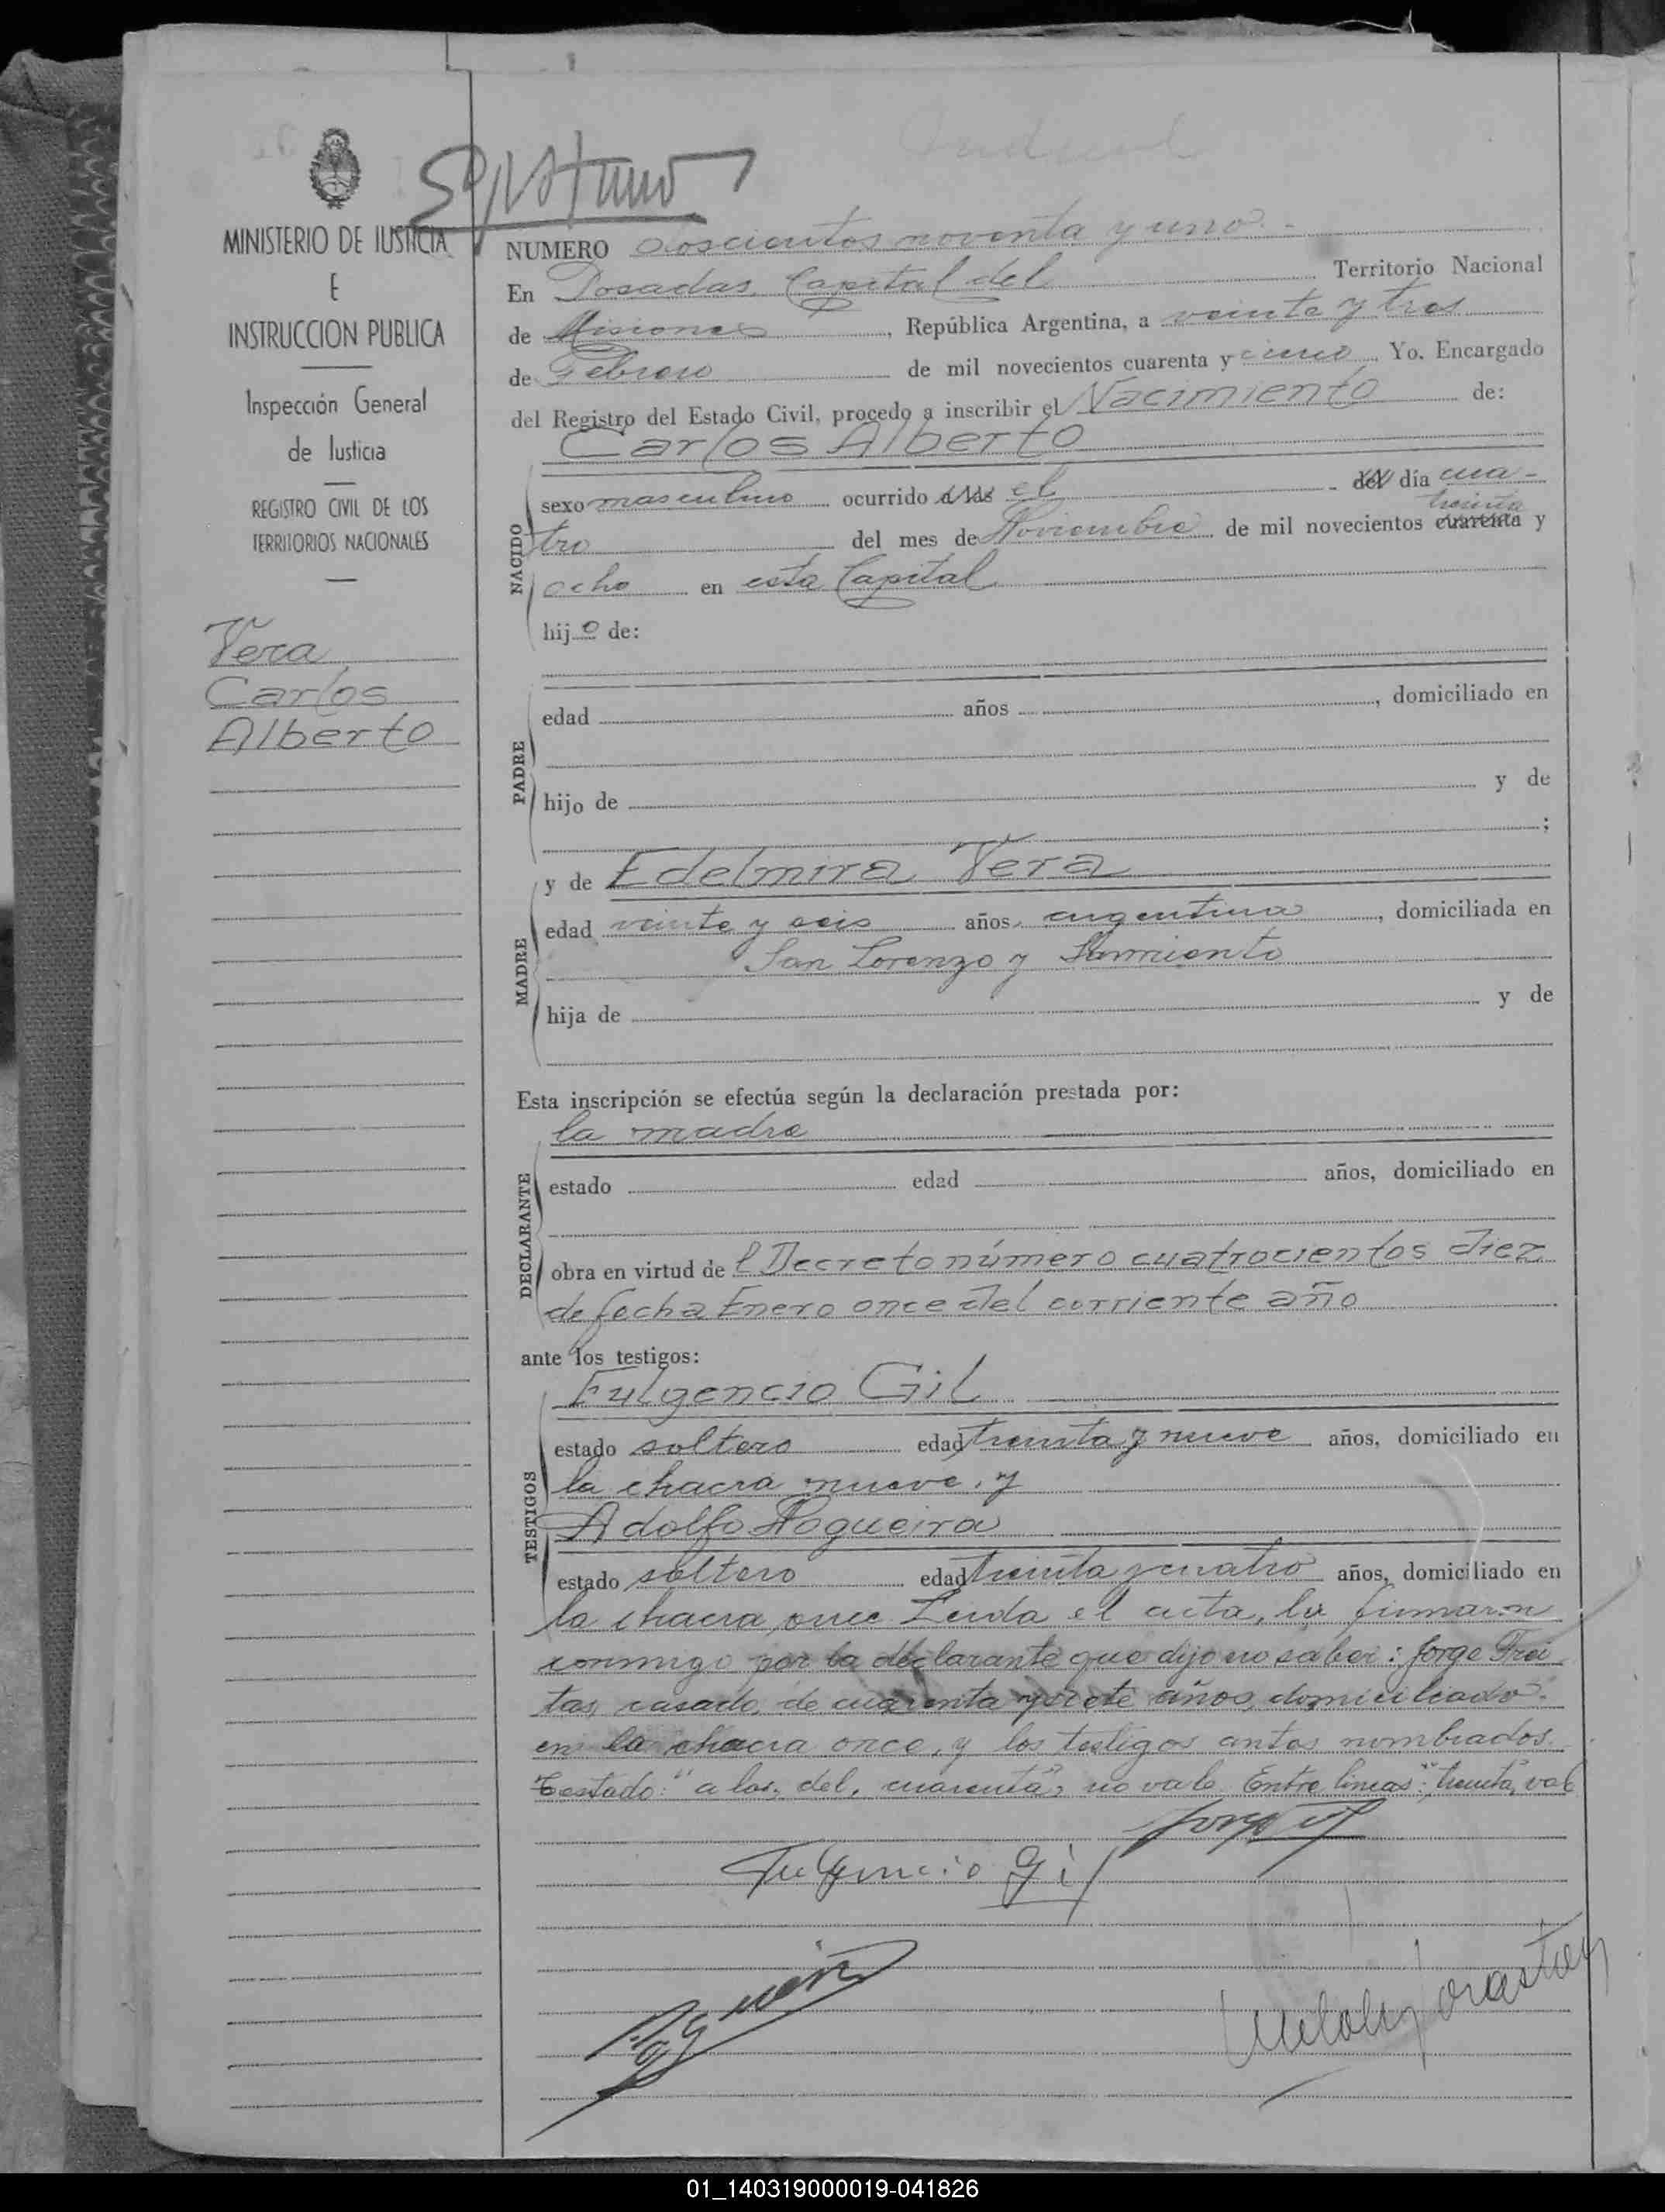 MINISTERIO DE JUSTICIA
E
INSTRUCCION PUBLICA
Inspección General
de Justicia
REGISTRO CIVIL DE LOS
TERRITORIOS NACIONALES
Vera
Carlos
Alberto
NUMERO doscientos noventa y uno.-
En Posadas, Capital del Territorio Nacional
de Misiones, República Argentina, a veinte y tres
de Febrero de mil novecientos cuarenta y cinco. Yo. Encargado
del Registro del Estado Civil, procedo a inscribir el Nacimiento de:
Carlos Alberto
NACIDO
sexo masculino ocurrido a las el del día cua-
treinta
tro del mes de Noviembre de mil novecientos cuarenta y
ocho en esta Capital
hijo de:
PADRE
edad años, domiciliado en
hijo de y de
;
MADRE
y de Edelmira Vera
edad veinte y seis años, argentina, domiciliada en
San Lorenzo y Sarmiento
hija de y de
Esta inscripción se efectúa según la declaración prestada por:
la madre
DECLARANTE
estado edad años, domiciliado en
obra en virtud de l Decreto número cuatrocientos diez
de fecha Enero once del corriente año
ante los testigos:
TESTIGOS
Fulgencio Gil
estado soltero edad treinta y nueve años, domiciliado en
la chacra nueve, y
Adolfo Nogueira
estado soltero edad treinta y cuatro años, domiciliado en
la chacra once Leida el acta, la firmaron
conmigo por la declarante que dijo no saber: Jorge Frei
tas, casado, de cuarenta y siete años, domiciliado
en la chacra once, y los testigos antes nombrados.
Testado: "a las, del, cuarenta", no vale. Entre lineas: "treinta", vale
Fulgencio Gil
01_140319000019-041826